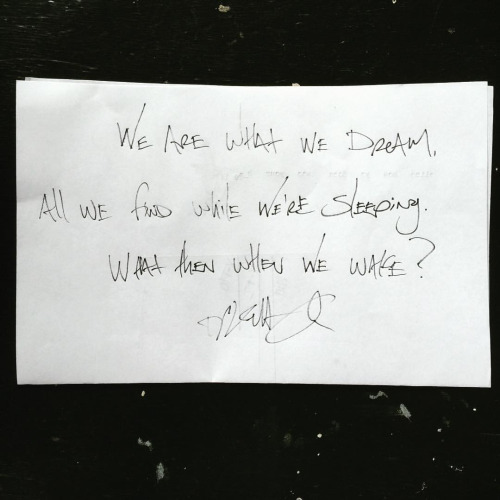 We Are what we Dream.
All we find while we're sleeping.
What then when we wake?